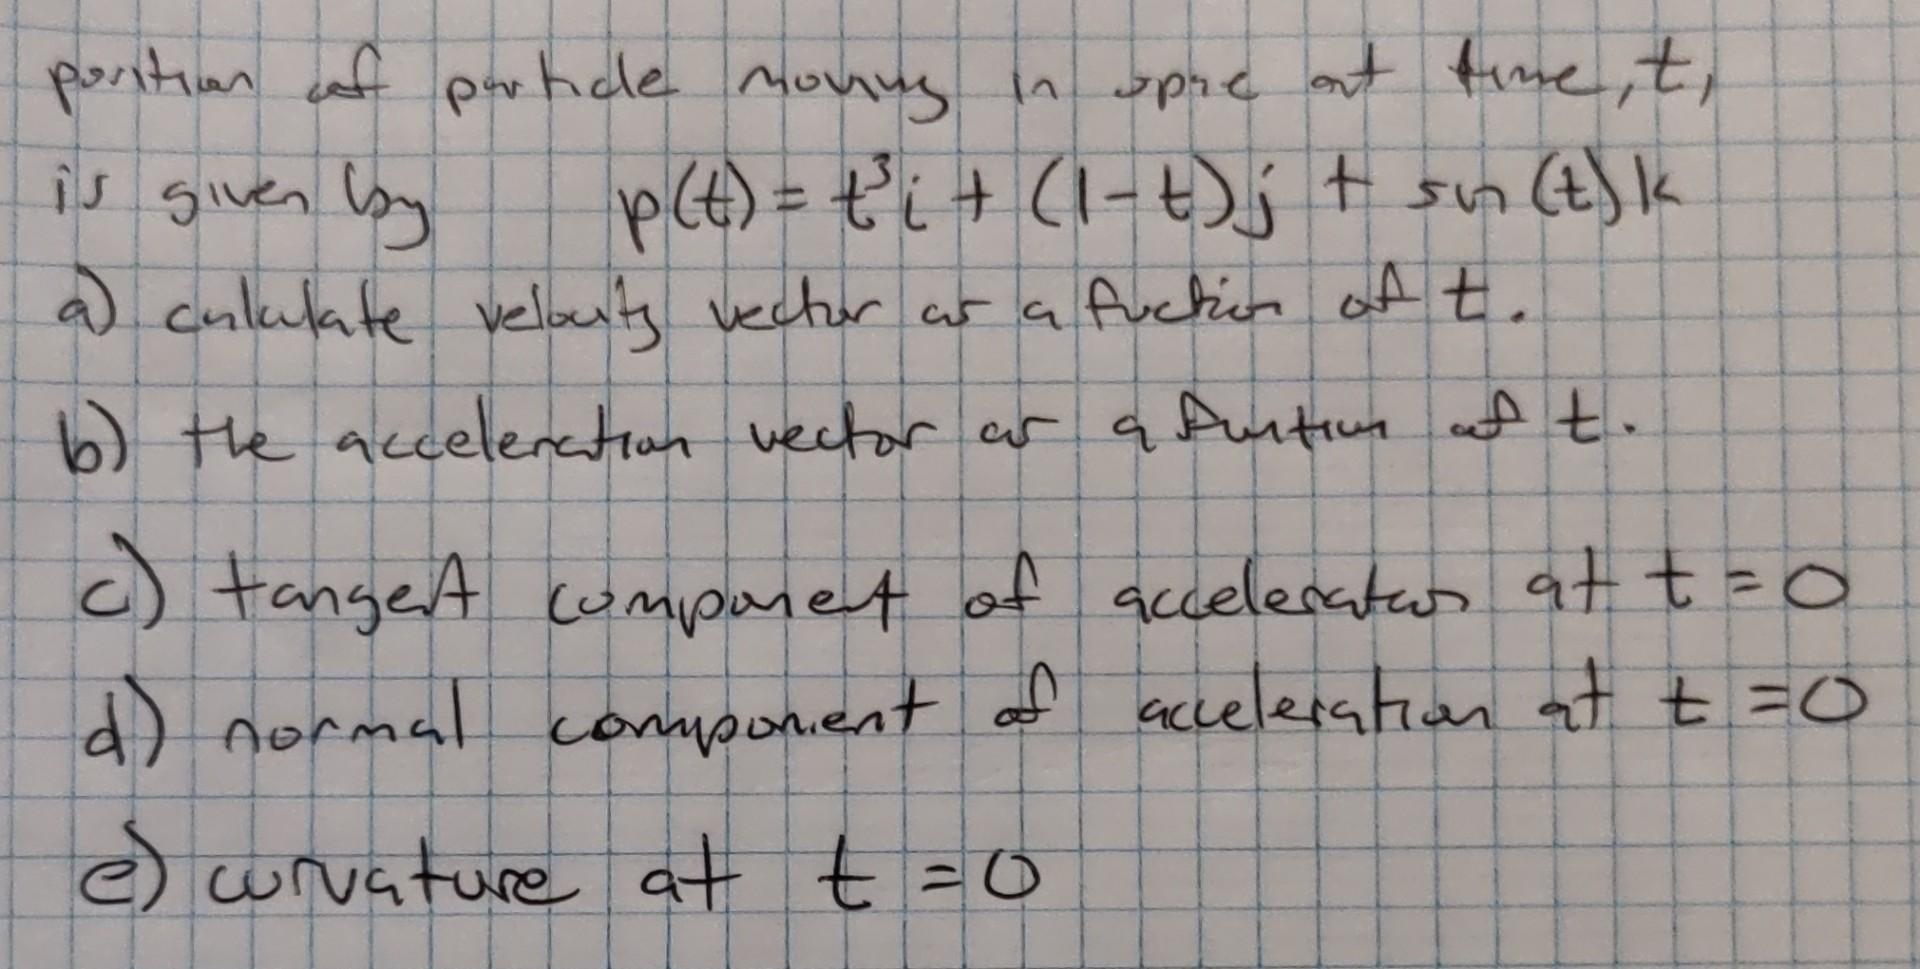 position of particle moving in space at time, t,
is given by p(t) = t³i + (1-t)j + sin(t)k
a) calculate velocity vector as a fuction of t.
b) the acceleration vector as a function of t.
c) tangent component of acceleration at t = 0
d) normal component of acceleration at t = 0
e) curvature at t = 0